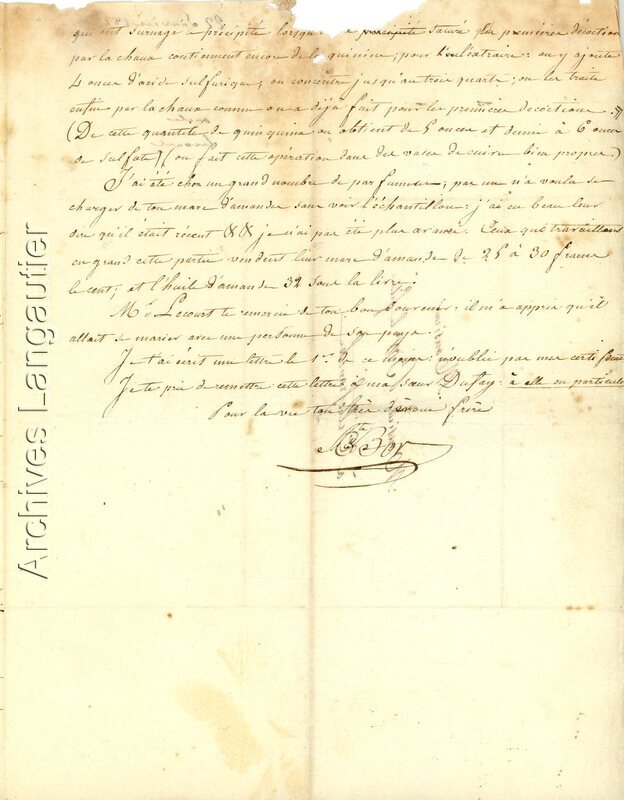 qui ont surnagé le précipité lorsque précipité saturé les premières décoctions
par la chaux contiennent encore de la quinine; pour l'en extraire: on y ajoute
4 onces d'acide sulfurique; on concentre jusqu'au trois quarts; on les traite
enfin par la chaux comme on a déjà fait pour les premières décoctions.
(De cette quantité de quinquina on obtient de 5 onces et demie à 6 onces
de sulfate) (on fait cette opération dans des vases de cuivre bien propres.)
J'ai été chez un grand nombre de parfumeurs; pas un n'a voulu se
charger de ton marc d'amandes sans voir l'échantillon: j'ai eu beau leur
dire qu'il était récent &&& je n'ai pas été plus avancé. Ceux qui travaillent
en grand cette partie vendent leur marc d'amandes de 25 à 30 francs
le cent; et l'huile d'amandes 32 sous la livre.
Mr. Lecourt te remercie de ton bon souvenir: il m'a appris qu'il
allait se marier avec une personne de son pays.
Je t'ai écrit une lettre le 1er de ce mois: n'oublie pas mes certificats
Je te prie de remettre cette lettre à ma sœur Dufay: à elle en particulier
Pour la vie ton dévoué frère
Bor
Archives Langautier